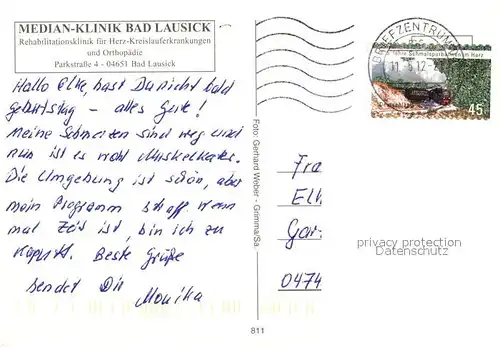 MEDIAN-KLINIK BAD LAUSICK
Rehabilitationsklinik für Herz-Kreislauferkrankungen
und Orthopädie
Parkstraße 4 - 04651 Bad Lausick
Hallo Elke, hast Du nicht bald
Geburtstag – alles Gute!
Meine Schmerzen sind weg und
nun ist es wohl Muskelkater.
Die Umgebung ist schön, aber
mein Programm schafft. Wenn
mal Zeit ist, bin ich zu
kaputt. Beste Grüße
sendet Dir
Monika
Foto: Gerhard Weber - Grimma/Sa
811
BRIEFZENTRUM
11 12
Schmalspurbahnen im Harz
45
Fra
Elk
Gar
0474
privacy protection
Datenschutz